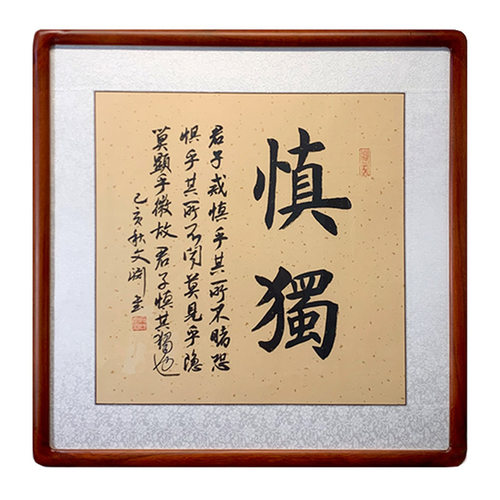 慎獨
君子戒慎乎其所不睹恐
惧乎其所不闻莫見乎隐
莫顯乎微故君子慎其獨也
己亥秋文